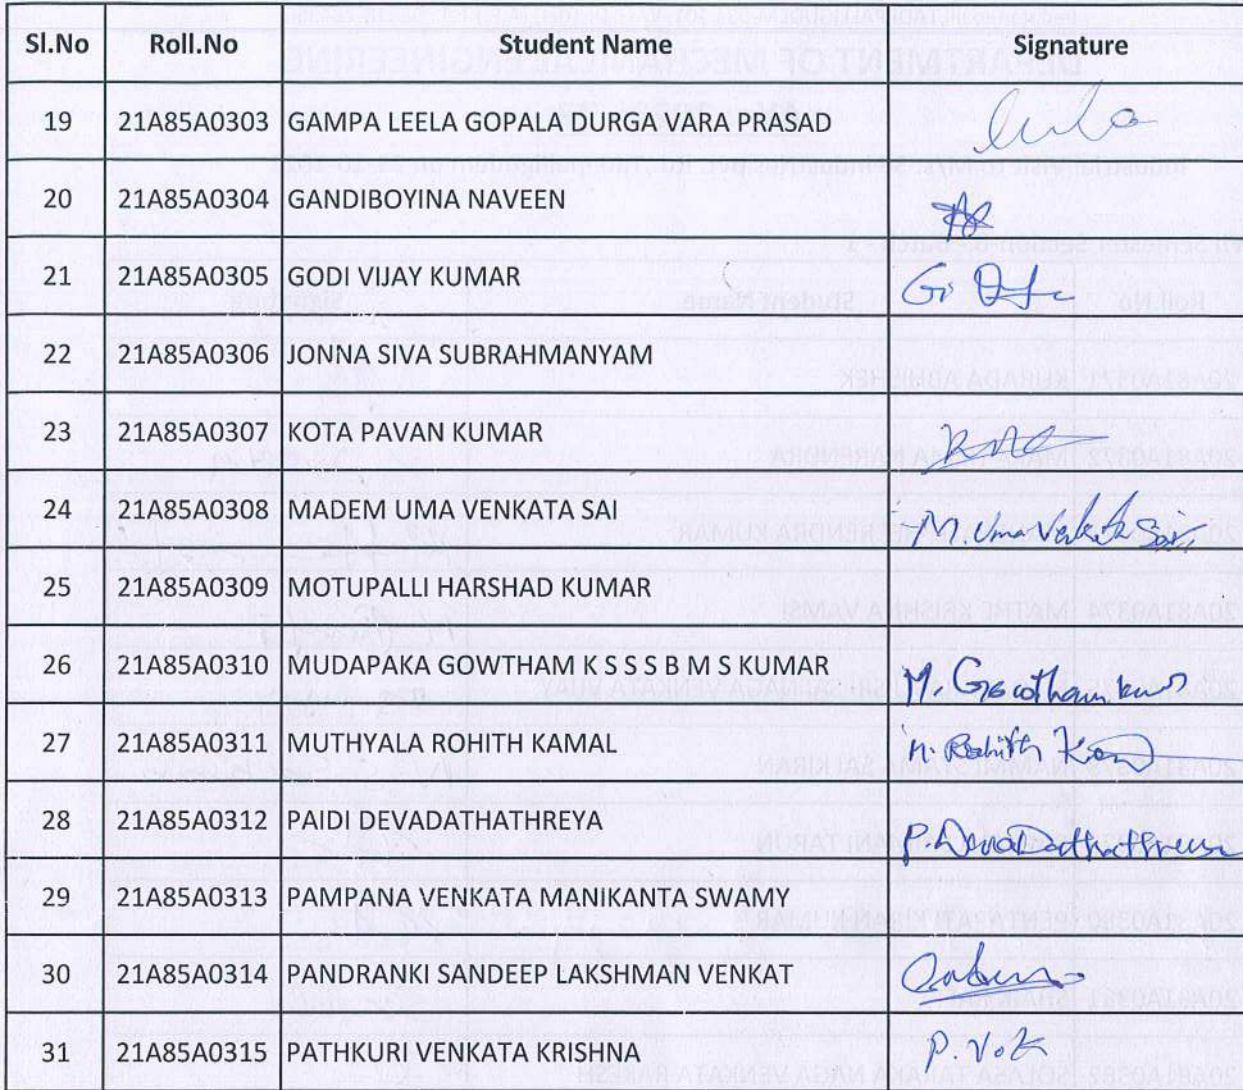 Sl.No Roll.No Student Name Signature
19 21A85A0303 GAMPA LEELA GOPALA DURGA VARA PRASAD
20 21A85A0304 GANDIBOYINA NAVEEN
21 21A85A0305 GODI VIJAY KUMAR
22 21A85A0306 JONNA SIVA SUBRAHMANYAM
23 21A85A0307 KOTA PAVAN KUMAR
24 21A85A0308 MADEM UMA VENKATA SAI M. Uma
25 21A85A0309 MOTUPALLI HARSHAD KUMAR
26 21A85A0310 MUDAPAKA GOWTHAM K S S S B M S KUMAR M.
27 21A85A0311 MUTHYALA ROHITH KAMAL
28 21A85A0312 PAIDI DEVADATHATHREYA P.
29 21A85A0313 PAMPANA VENKATA MANIKANTA SWAMY
30 21A85A0314 PANDRANKI SANDEEP LAKSHMAN VENKAT
31 21A85A0315 PATHKURI VENKATA KRISHNA P.V.K